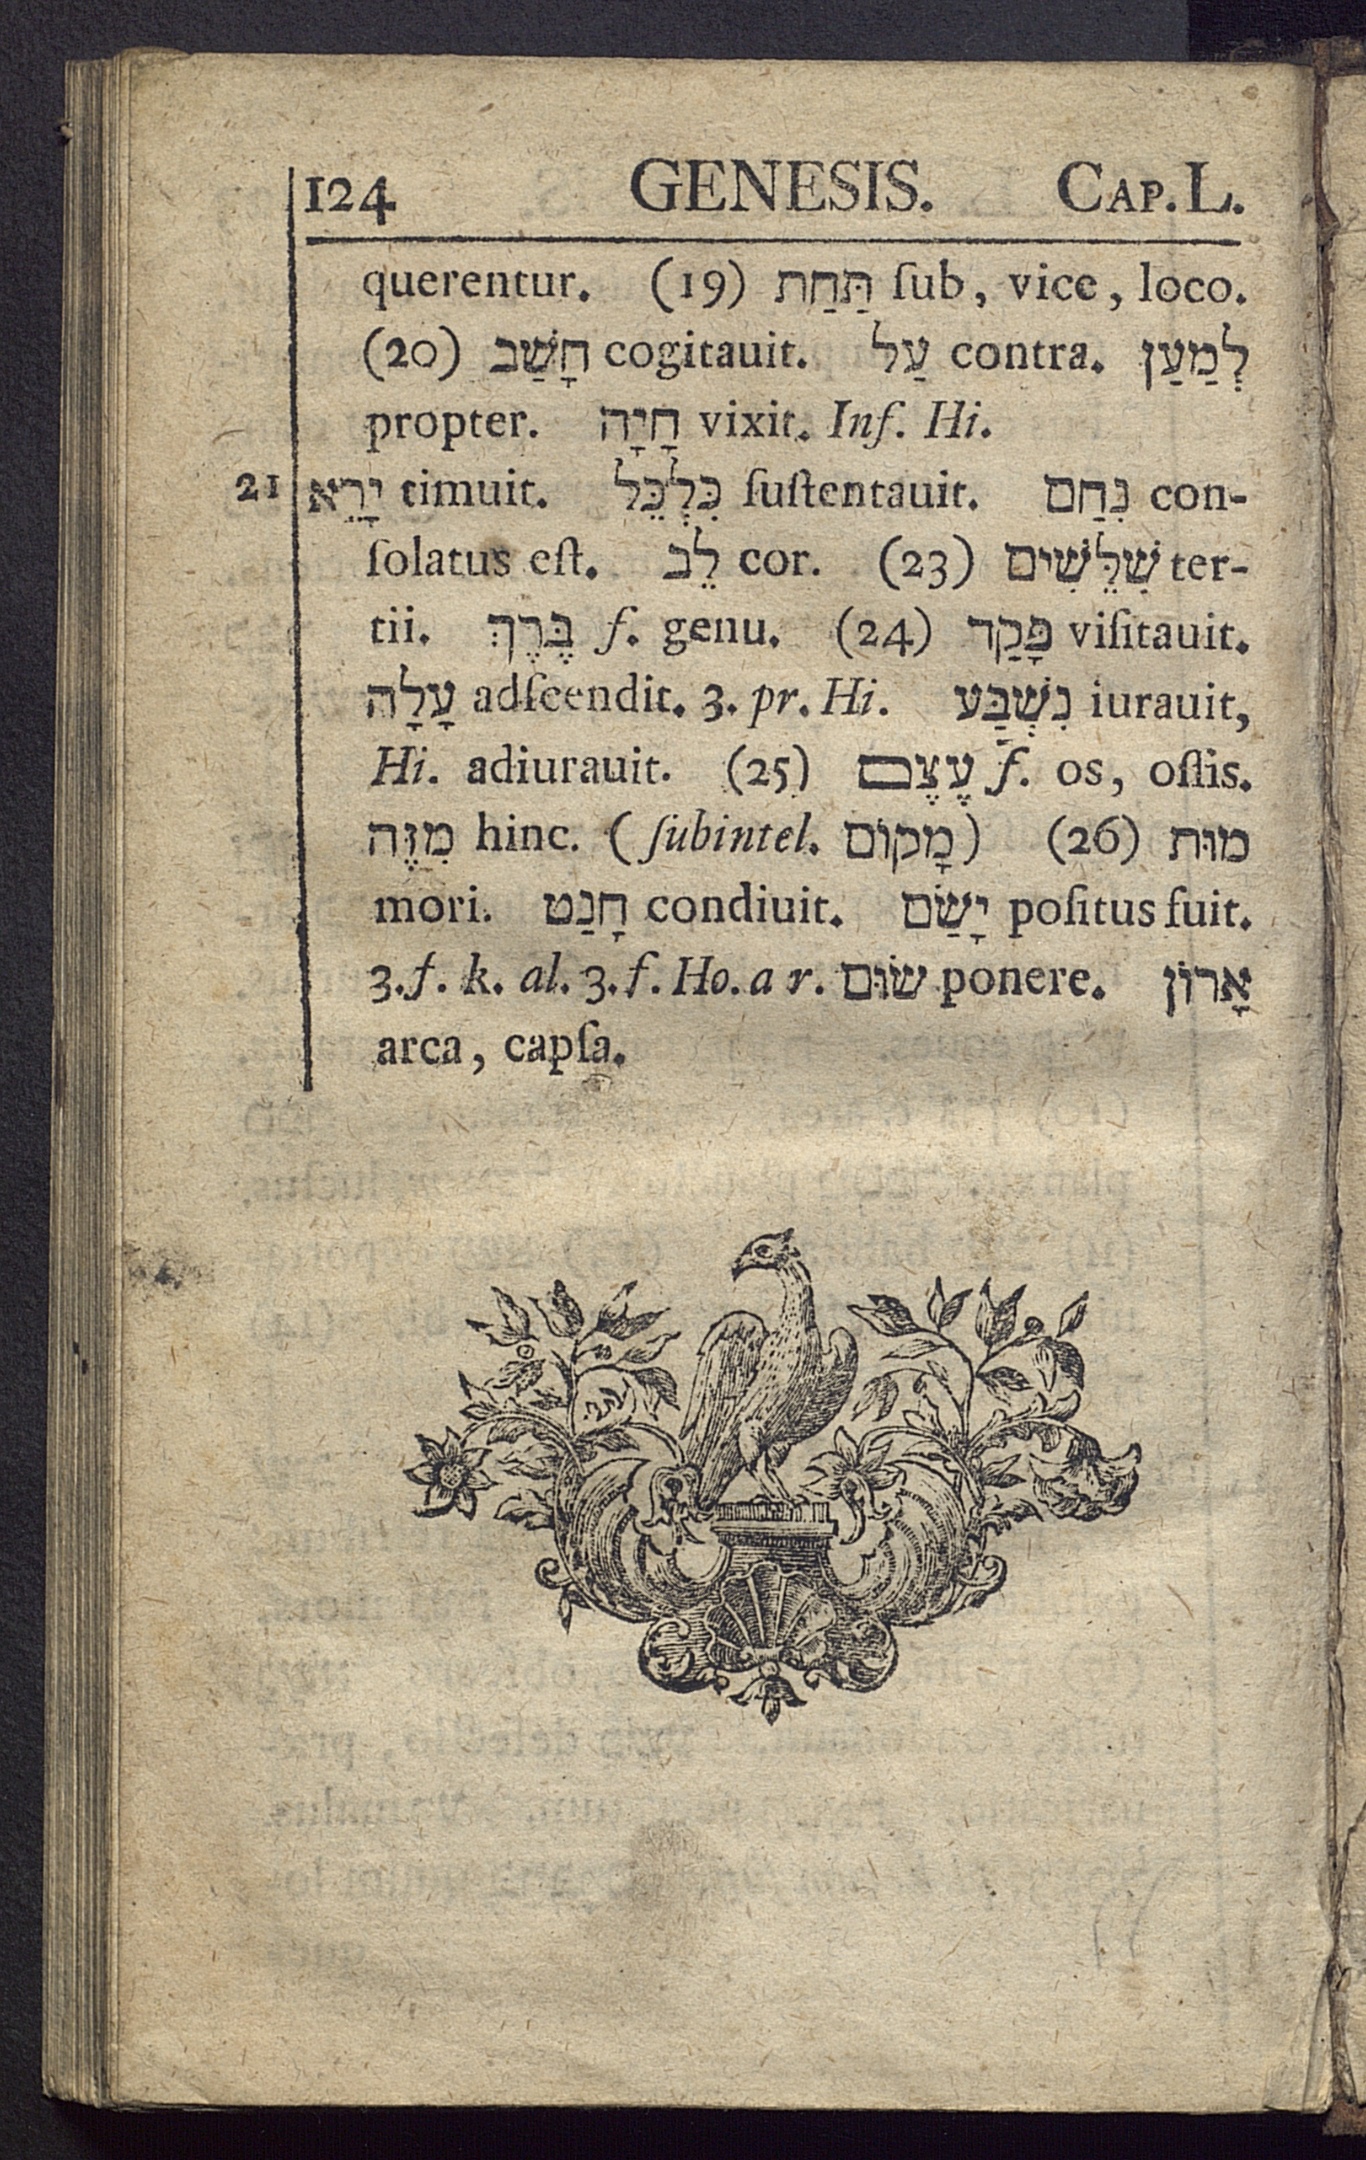 124 GENESIS. CAP. L.
querentur. (19) תַּחַת ſub, vice, loco.
(20) חָשַׁב cogitauit. עַל contra. לְמַעַן
propter. חָיָה vixit. Inf. Hi.
21 יָרֵא timuit. כִּלְכֵּל ſuſtentauit. נִחַם con-
ſolatus eſt. לֵב cor. (23) שִׁלֵּשִׁים ter-
tii. בֶּרֶךְ f. genu. (24) פָּקַד viſitauit.
עָלָה adſcendit. 3. pr. Hi. נִשְׁבַּע iurauit,
Hi. adiurauit. (25) עֶצֶם f. os, oſſis.
מִזֶּה hinc. (ſubintel. מָקוֹם) (26) מוּת
mori. חָנַט condiuit. יָשַׂם poſitus fuit.
3. f. k. al. 3. f. Ho. a r. שׂוּם ponere. אָרוֹן
arca, capſa.